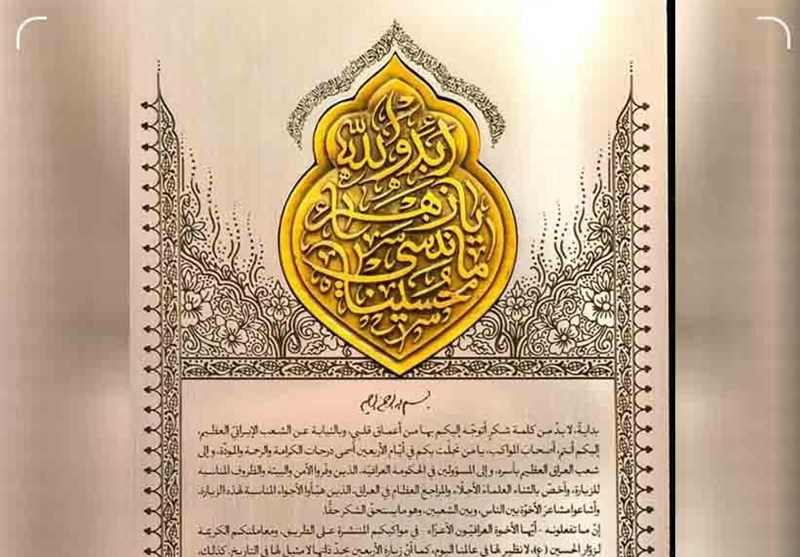 أبد والله
يا زهراء
ما ننسى
حسيناه
بسم الله الرحمن الرحيم
بدايةً، لا بدّ من كلمة شكرٍ أتوجّه إليكم بها من أعماق قلبي، وبالنيابة عن الشعب الإيرانيّ العظيم،
إليكم أنتم، أصحاب المواكب، يا من تجلّت بكم في أيّام الأربعين أسمى درجات الكرامة والرحمة والمودّة، وإلى
شعب العراق العظيم بأسره، وإلى المسؤولين في الحكومة العراقيّة، الذين وفّروا الأمن والبيئة والظروف المناسبة
للزيارة، وأخصّ بالثناء العلماءَ الأجلّاء والمراجع العظام في العراق، الذين هيّأوا الأجواء المناسبة لهذه الزيارة،
وأشاعوا مشاعرَ الأخوّة بين الناس، وبين الشعبين، وهو ما يستحق الشكر حقًّا.
إنّ ما تفعلونه - أيّها الأخوة العراقيّون الأعزّاء - في مواكبكم المنتشرة على الطريق، ومعاملتكم الكريمة
لزوّار الحسين (ع)، لا نظير لها في عالمنا اليوم، كما أنّ زيارة الأربعين بحدّ ذاتها لا مثيل لها في التاريخ. كذلك،